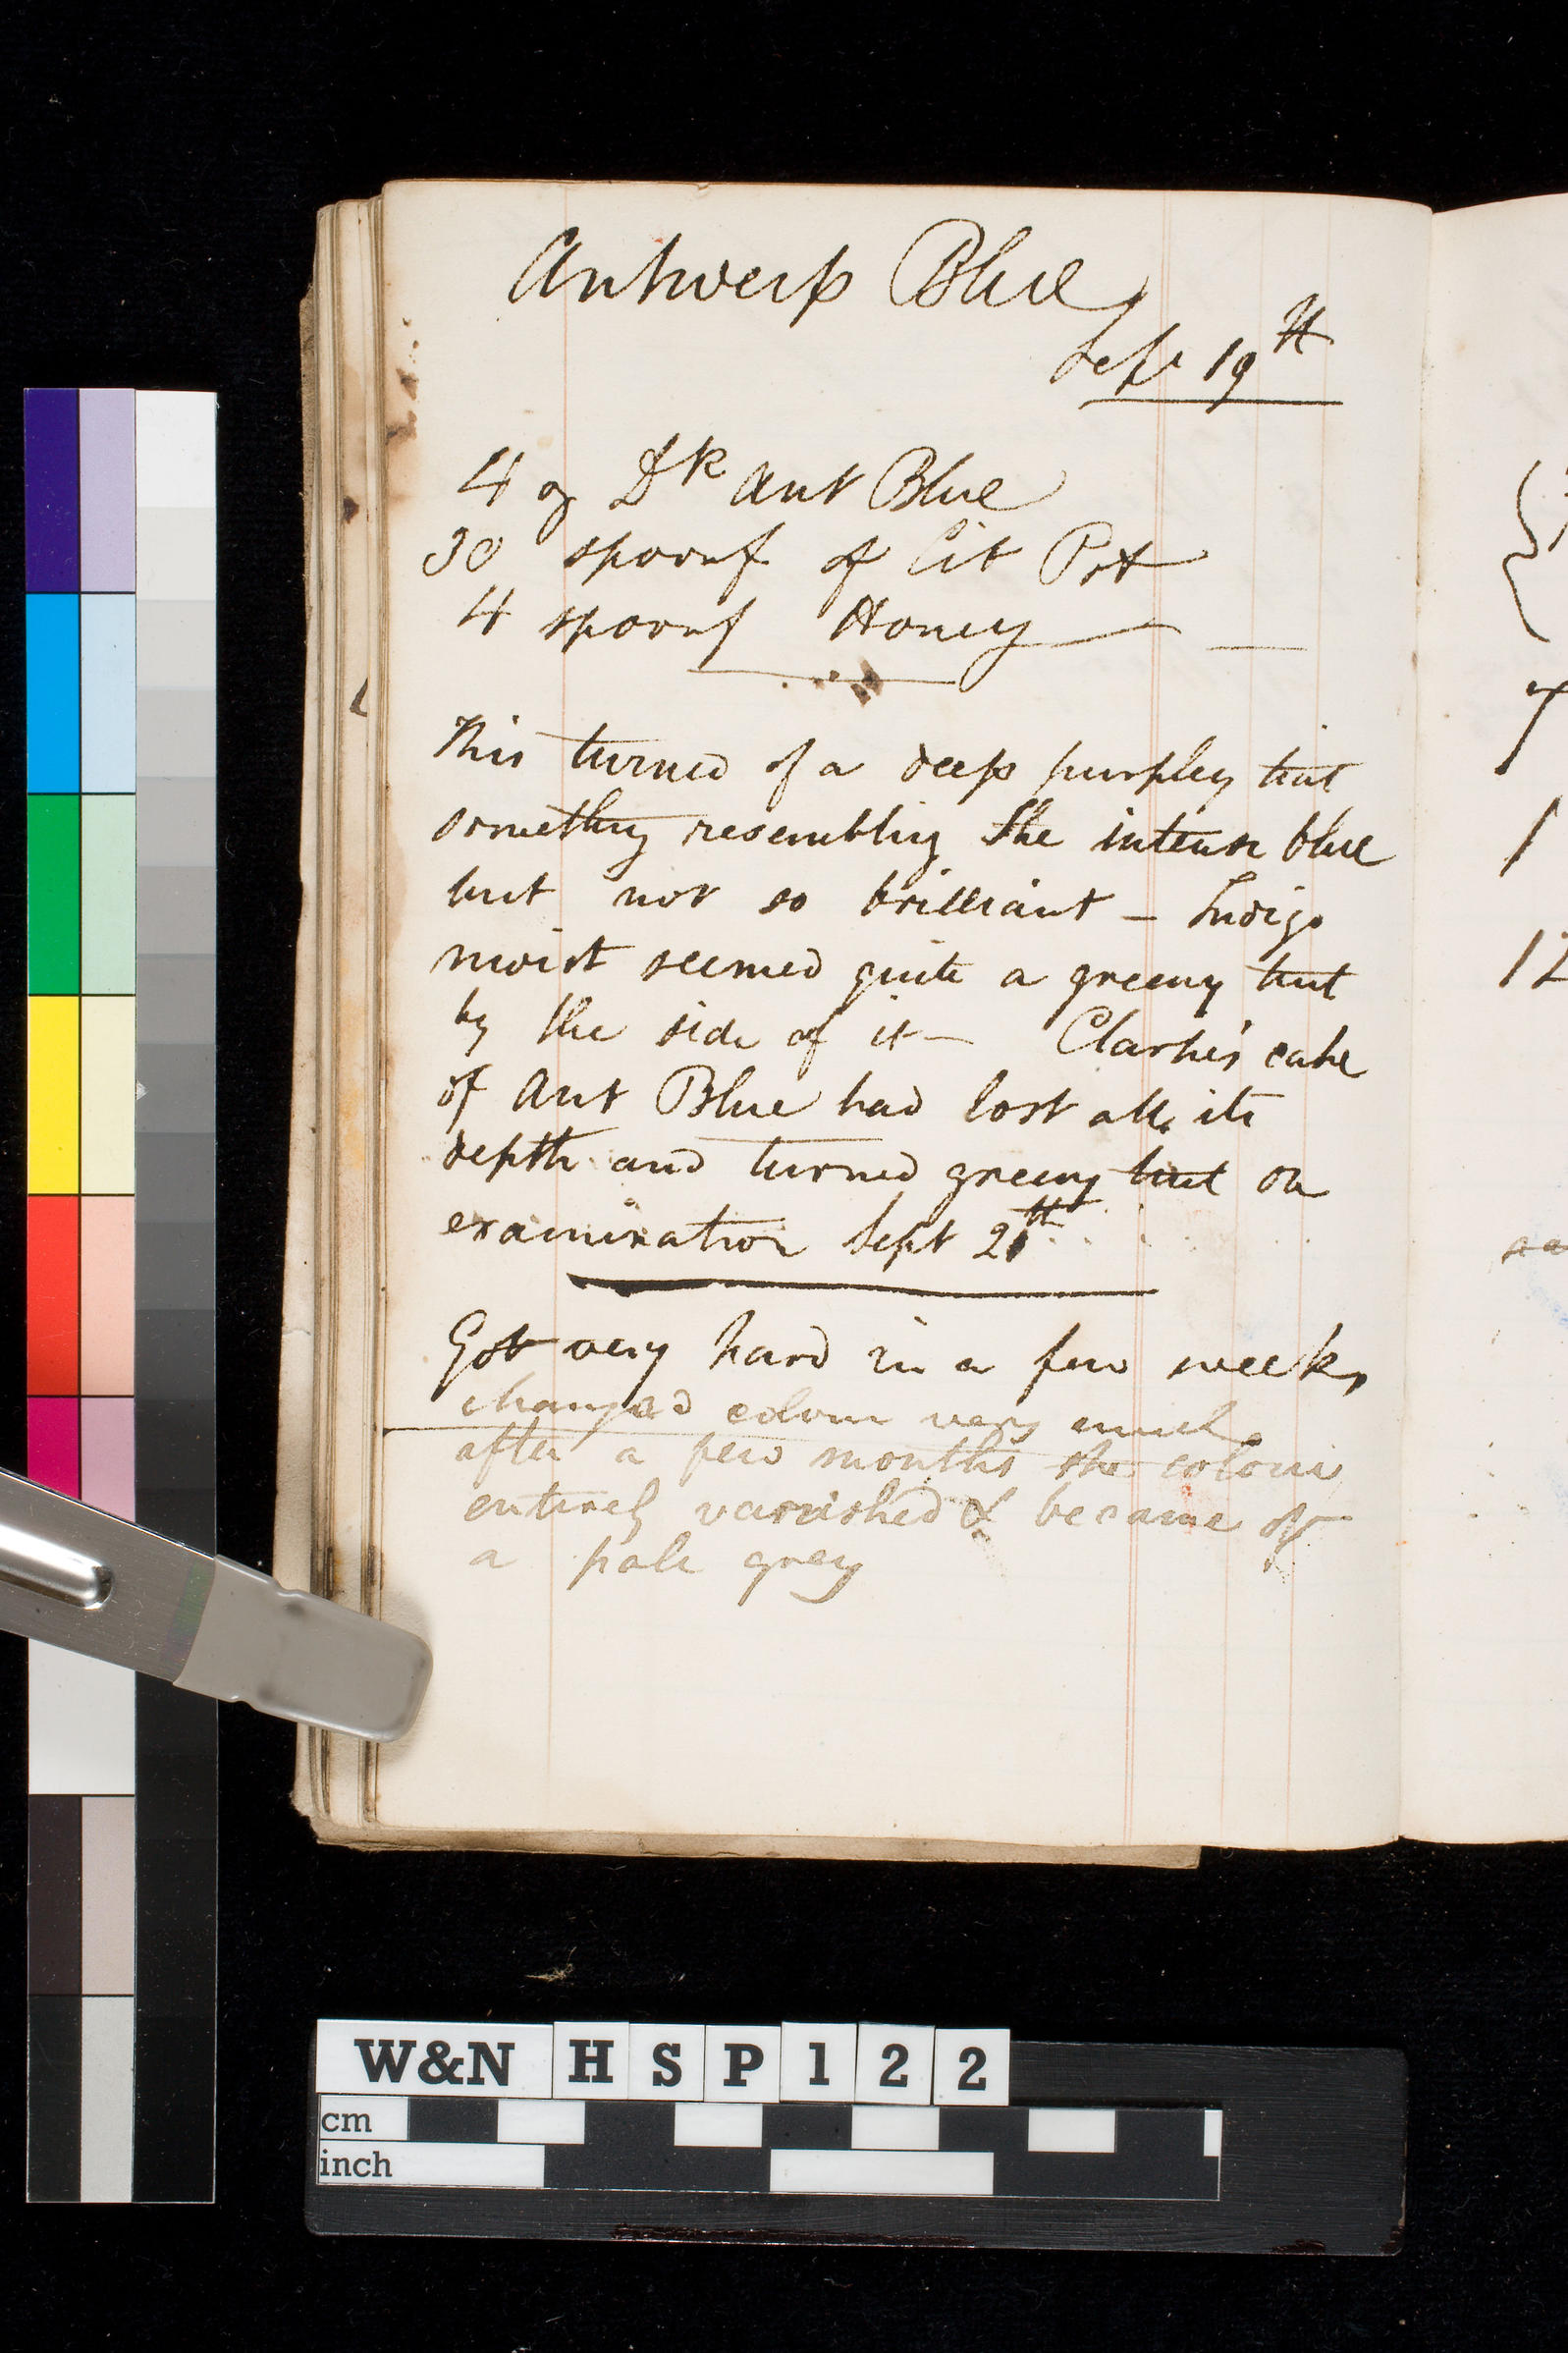 Antwerp Blue
Sept 19th
4 oz Dk Ant Blue
30 spoonf of Cit Pot
4 spoonf Honey
This turned of a deep purpley tint
something resembling the intense blue
but not so brilliant – Indigo
moist seemed quite a greeny tint
by the side of it – Clarke's cake
of Ant Blue had lost all its
depth and turned greeny tint on
examination Sept 21th
Got very hard in a few weeks
changed colour very much
after a few months the colour
entirely vanished & became of
a pale grey
7
1
12
W&N HSP122
cm
inch